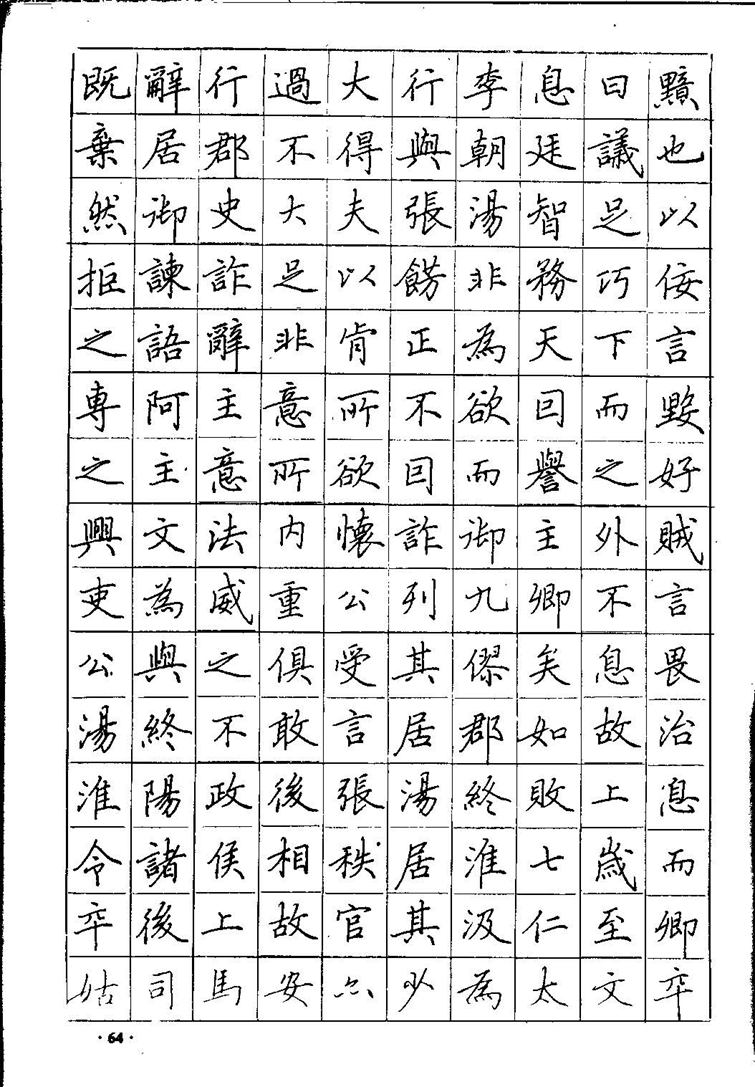 既辭行過大行李息曰黯
棄居郡不得與朝廷議也
然御史大夫張湯智足以
拒諫詐足以餝非務巧佞
之語辭非肯正為天下言
專阿主意所不欲回而毀
之主意所欲回而譽之好
興文法内懷詐御主外賊
吏為威重公列九卿不言
公與之俱受其僇矣息畏
湯終不敢言居郡如故治
淮陽政後張湯終敗上息
令諸侯相秩居淮七歲而
卒後上故官其汲仁至卿
姑司馬安亦少為太文卒
·64·